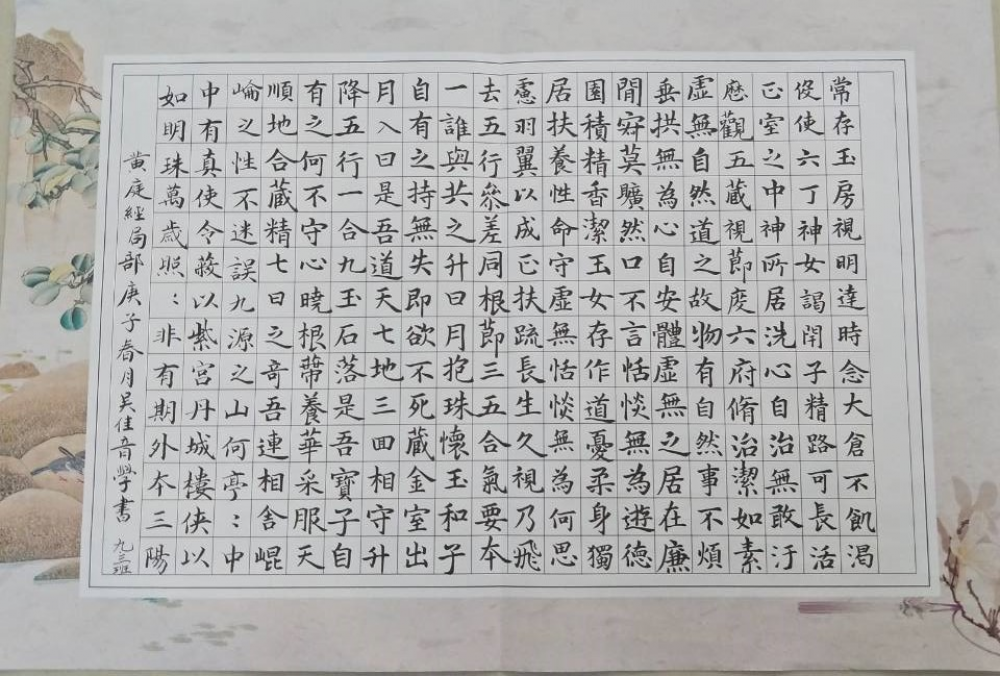 常存玉房視明達時念大倉不飢渴
役使六丁神女謁閉子精路可長活
正室之中神所居洗心自治無敢汙
歷觀五藏視節度六府脩治潔如素
虛無自然道之故物有自然事不煩
垂拱無為心自安體虛無之居在廉
閒寂莫曠然口不言恬惔無為遊德
園積精香潔玉女存作道憂柔身獨
居扶養性命守虛無恬惔無為何思
慮羽翼以成正扶疏長生久視乃飛
去五行參差同根節三五合氣要本
一誰與共之升日月抱珠懷玉和子
自有之持無失即欲不死藏金室出
月入日是吾道天七地三回相守升
降五行一合九玉石落是吾寶子自
有之何不守心曉根蔕養華采服天
順地合藏精七日之奇吾連相舍崐
崘之性不迷誤九源之山何亭：中
中有真使令蔉以紫宮丹城樓俠以
如明珠萬歲照：非有期外本三陽
黄庭經局部庚子春月吴佳音學書
九三班